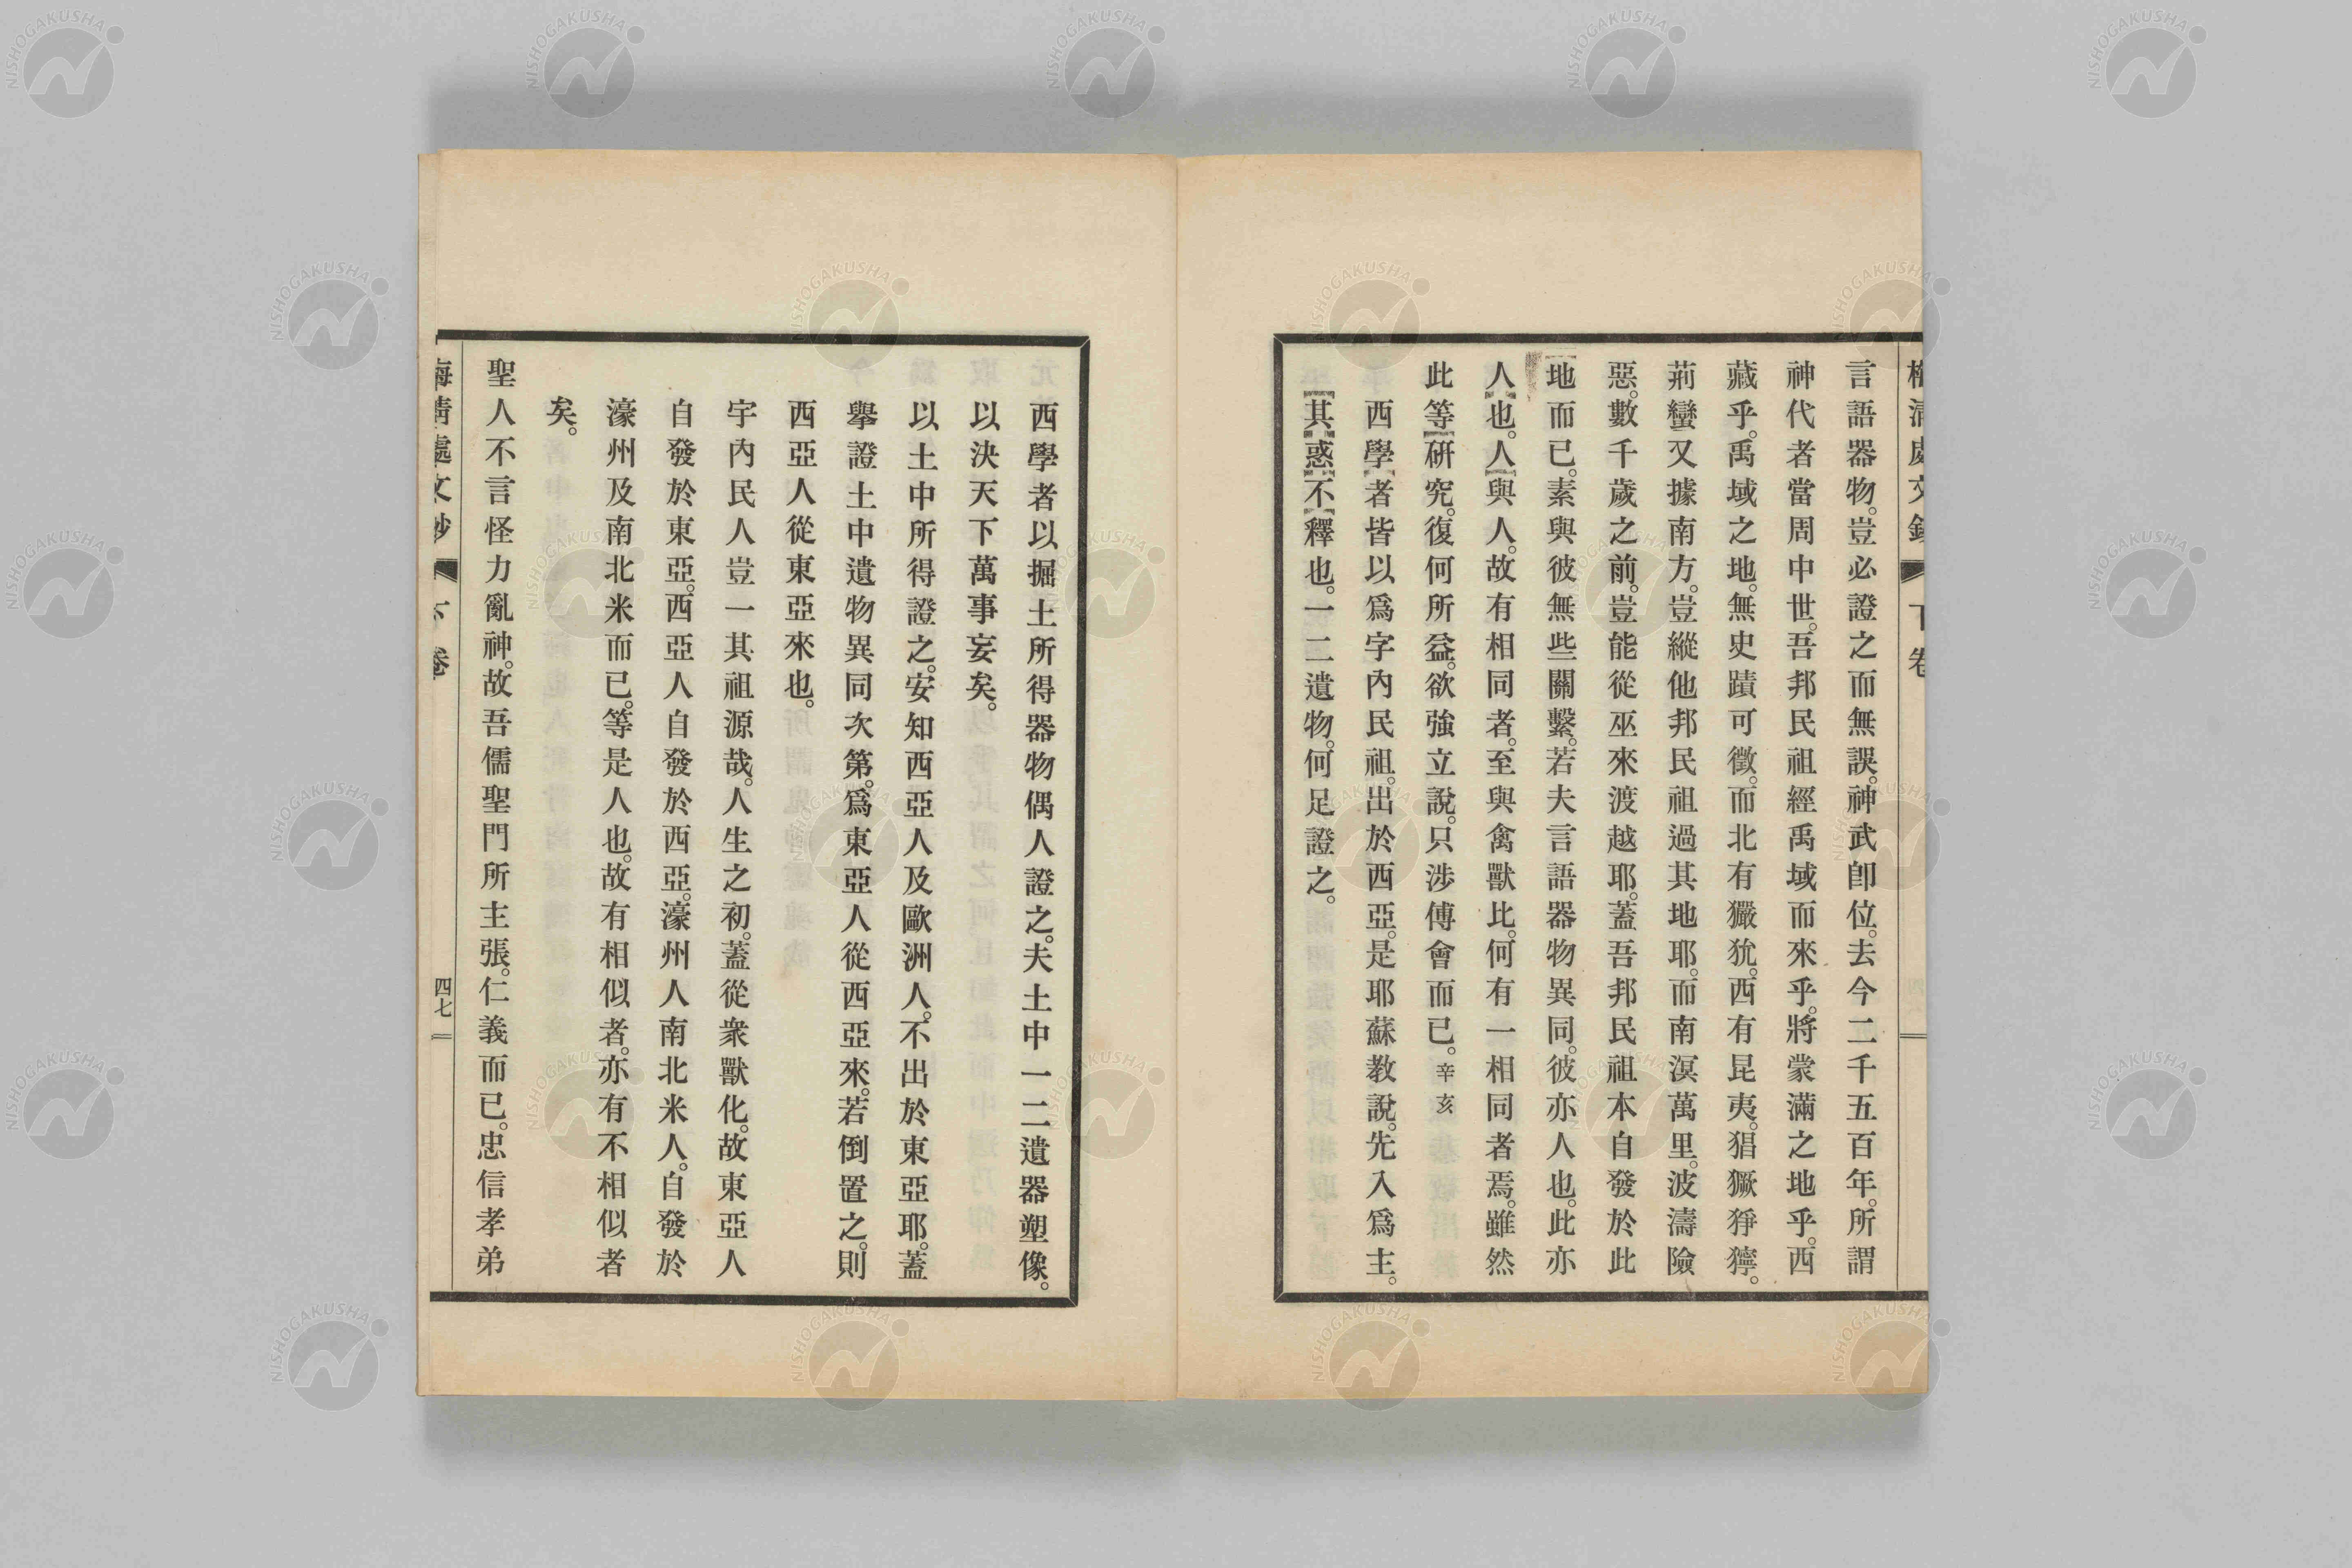 言語器物。豈必證之而無誤。神武卽位。去今二千五百年。所謂
神代者當周中世。吾邦民祖經禹域而來乎。將蒙滿之地乎。西
藏乎。禹域之地。無史蹟可徵。而北有玁狁。西有昆夷。猖獗猙獰。
荊蠻又據南方。豈縱他邦民祖過其地耶。而南溟萬里。波濤險
惡。數千歲之前。豈能從巫來渡越耶。蓋吾邦民祖本自發於此
地而已。素與彼無些關繫。若夫言語器物異同。彼亦人也。此亦
人也。人與人。故有相同者。至與禽獸比。何有一相同者焉。雖然
此等硏究。復何所益。欲強立說。只涉傅會而已。辛亥
西學者皆以爲宇內民祖。出於西亞。是耶蘇教說。先入爲主。
其惑不釋也。一二遺物。何足證之。
下卷
西學者以掘土所得器物偶人證之。夫土中一二遺器塑像。
以決天下萬事妄矣。
以土中所得證之。安知西亞人及歐洲人。不出於東亞耶。蓋
擧證土中遺物異同次第。爲東亞人從西亞來。若倒置之。則
西亞人從東亞來也。
宇內民人豈一其祖源哉。人生之初。蓋從衆獸化。故東亞人
自發於東亞。西亞人自發於西亞。濠州人南北米人。自發於
濠州及南北米而已。等是人也。故有相似者。亦有不相似者
矣。
聖人不言怪力亂神。故吾儒聖門所主張。仁義而已。忠信孝弟
四七